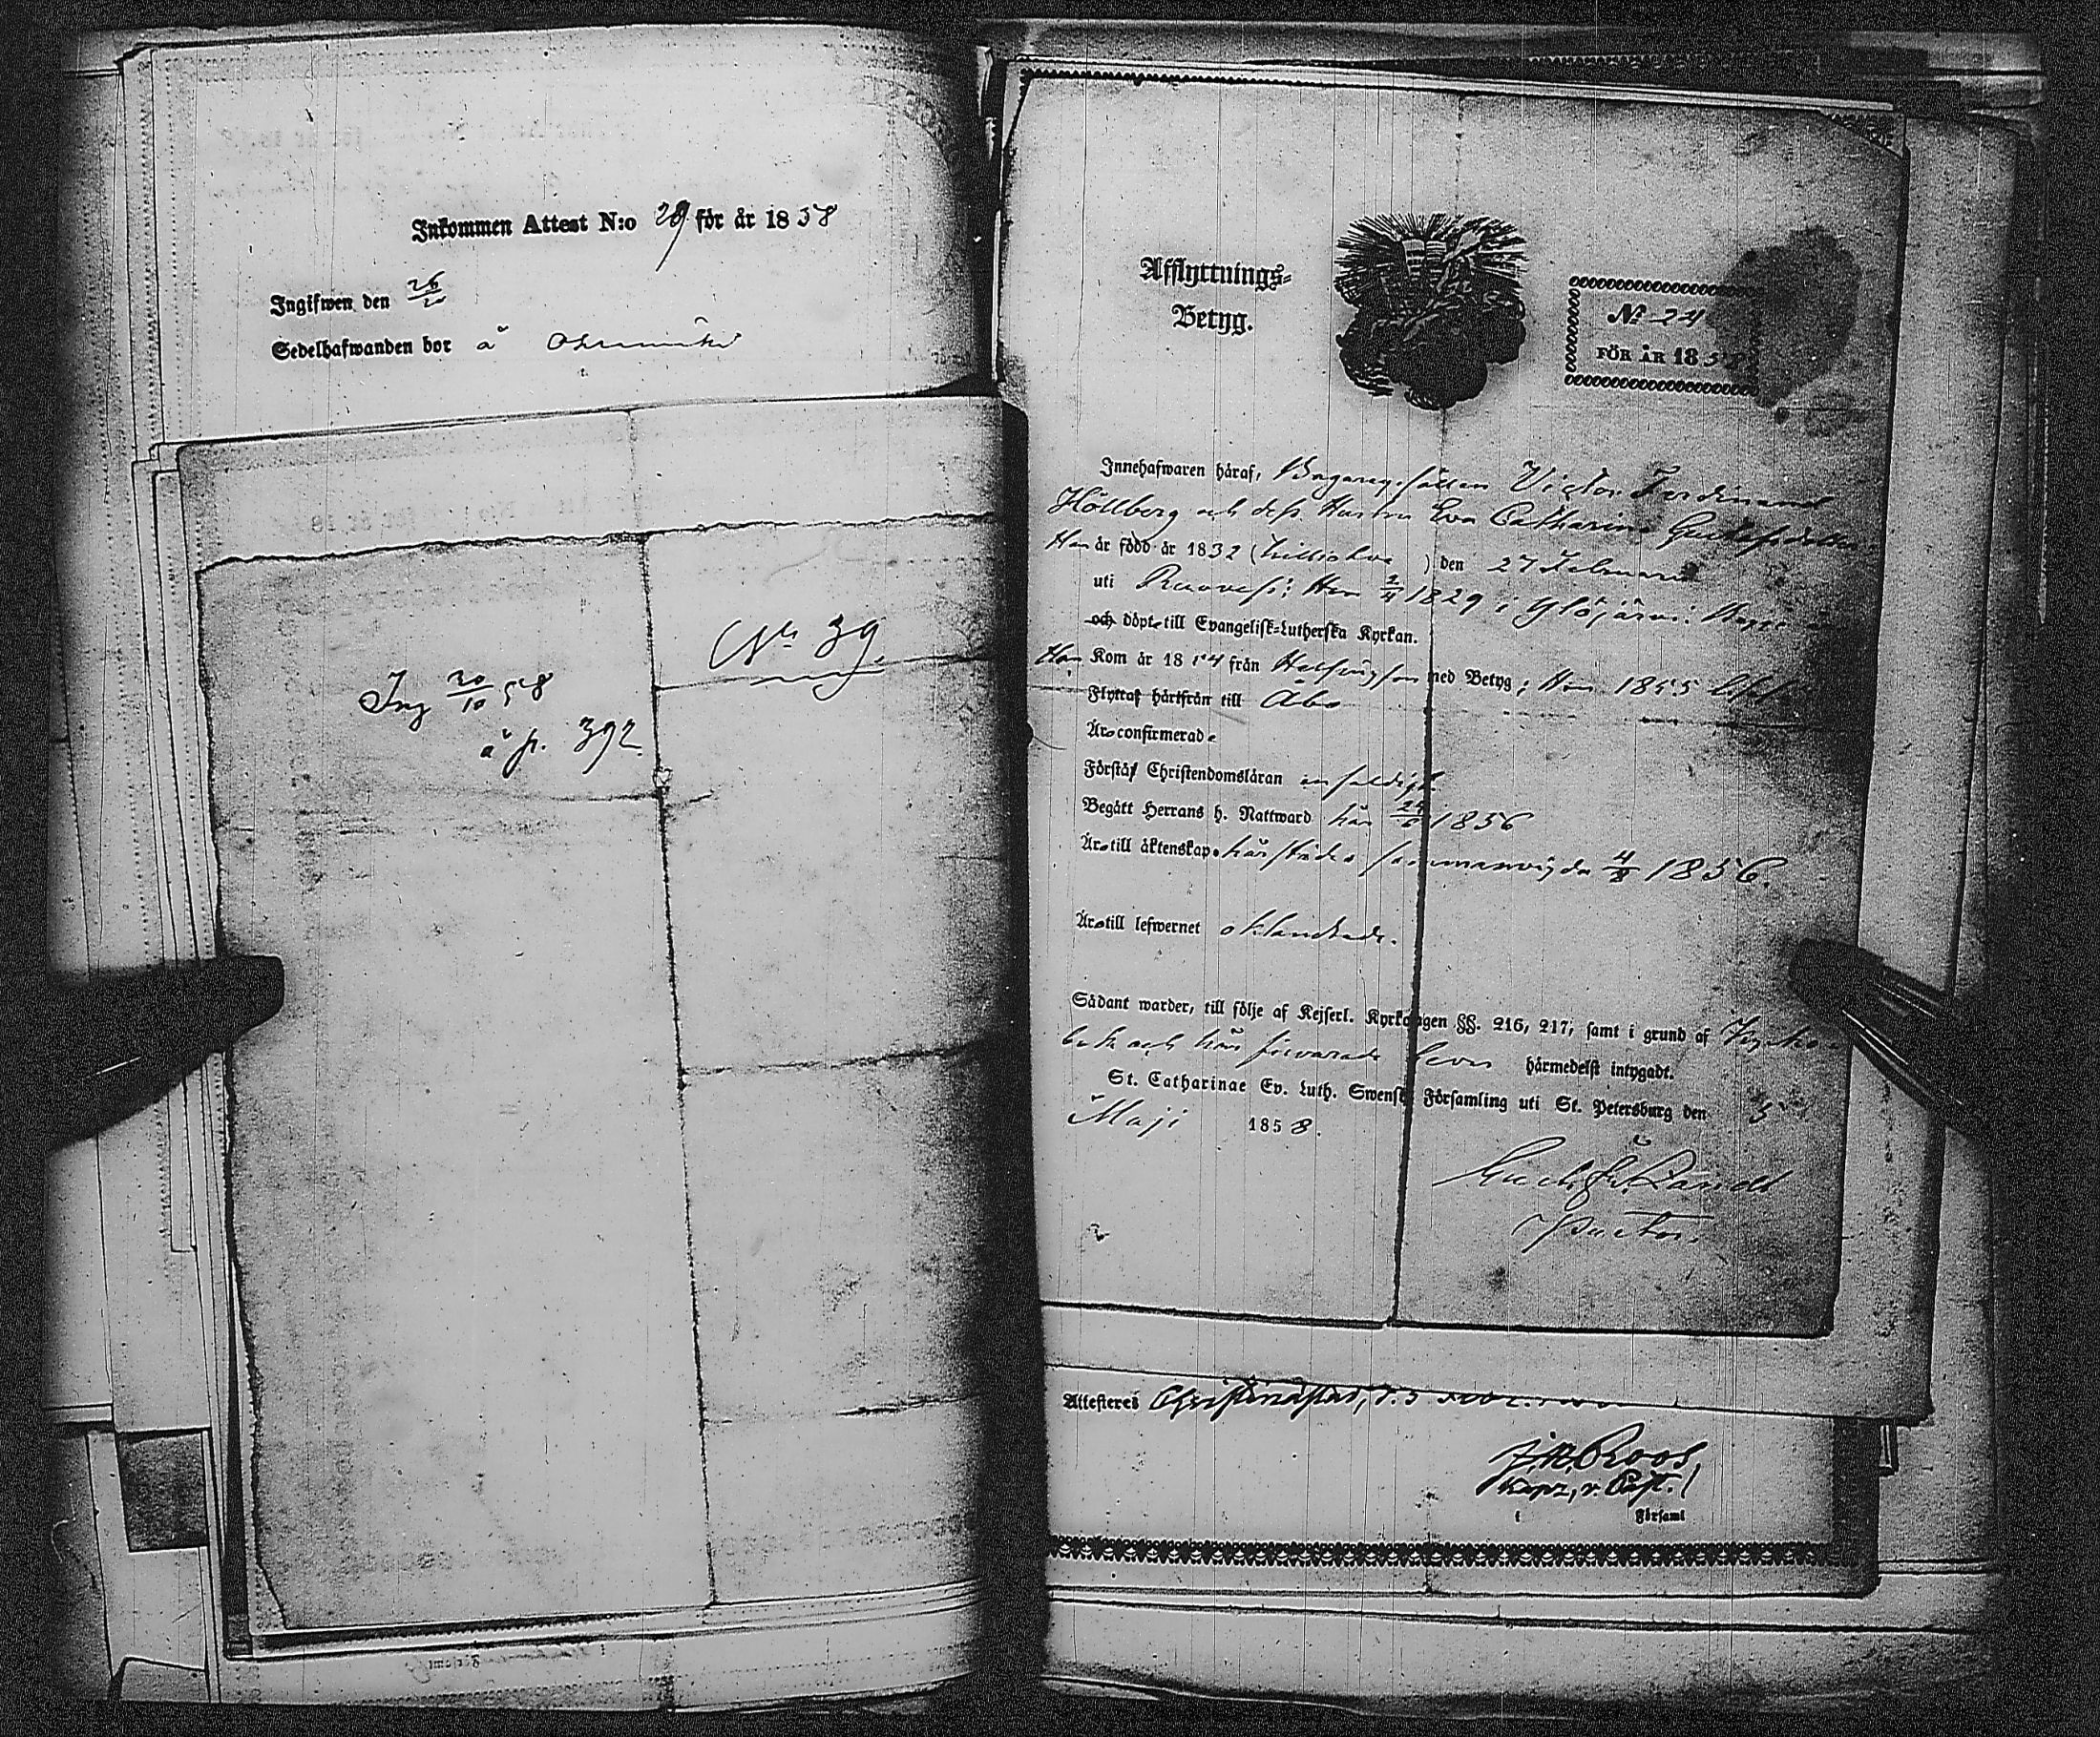 Inkommen Attest N:o 29 för år 1858
Ingifwen den 26/10
Sedelhafwanden bor å
No 39
Ing 20/10 58
å p. 392
Afflyttnings-
Betyg.
No 24
FÖR ÅR 185
Innehafwaren håraf, Bagareg:sällen Victor Ferdinand
Höllberg och dess Hustru Eva Catharina Gustafsdotter
Han är född år 1832 ( ) den 27 Februari
uti Ruovesi; Hon 2/4 1829 i Ylöjärvi:
och döpte till Evangelisk-Lutherska Kyrkan.
Han Kom år 1854 från Helsingfors med Betyg; Hon 1855
Flyttar hårifrån till Åbo
Äro confirmerade
Förstå Christendomsläran enfaldigt
Begått Herrans h. Nattward här 24/6 1856
Äro till äktenskap härstädes sammanvigda 4/8 1856.
Äro till lefwernet oklandrade.
Sådant warder, till följe af Kejserl. Kyrkolagen §§. 216, 217, samt i grund af Kyrko-
bok och här förvarade bevis hårmedelst intygadt.
St. Catharinae Ev. Luth. Swenska Församling uti St. Petersburg den 5
Maji 1858.
Pastor.
Attesteras Christinæstad, d. 5
J. N. Roos,
Kapz, v. Past.
i Församl